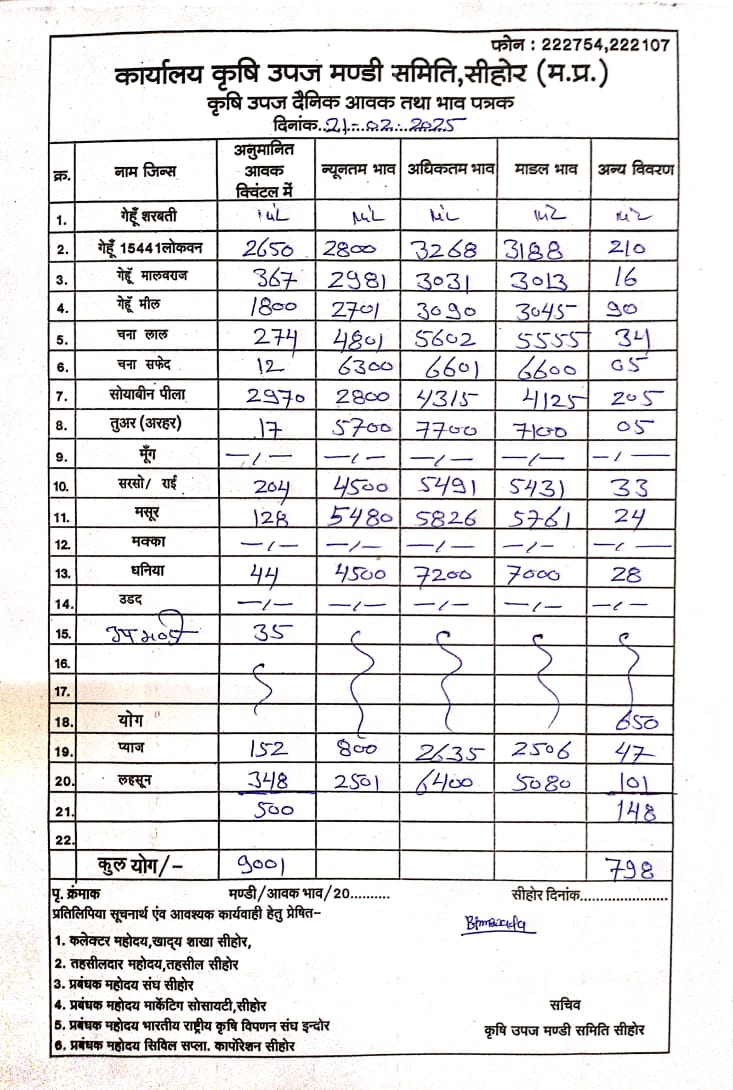 फोन : 222754,222107
कार्यालय कृषि उपज मण्डी समिति,सीहोर (म.प्र.)
कृषि उपज दैनिक आवक तथा भाव पत्रक
दिनांक..21-02-2025
क्र. नाम जिन्स अनुमानित आवक क्विंटल में न्यूनतम भाव अधिकतम भाव माडल भाव अन्य विवरण
1. गेहूँ शरबती NIL NIL NIL NIL NIL
2. गेहूँ 15441लोकवन 2650 2800 3268 3188 210
3. गेहूँ मालवराज 367 2981 3031 3013 16
4. गेहूँ मील 1800 2701 3090 3045 90
5. चना लाल 274 4801 5602 5555 34
6. चना सफेद 12 6300 6601 6600 05
7. सोयाबीन पीला 2970 2800 4315 4125 205
8. तुअर (अरहर) 17 5700 7700 7100 05
9. मूँग —/— —/— —/— —/— —/—
10. सरसो/ राई 204 4500 5491 5431 33
11. मसूर 128 5480 5826 5761 24
12. मक्का —/— —/— —/— —/— —/—
13. धनिया 44 4500 7200 7000 28
14. उडद —/— —/— —/— —/— —/—
15. उपमंडी 35
16.
17.
18. योग " 650
19. प्याज 152 800 2635 2506 47
20. लहसून 348 2501 6400 5080 101
21. 500 148
22.
कुल योग/- 9001 798
पृ. क्रंमाक मण्डी/आवक भाव/20.......... सीहोर दिनांक......................
प्रतिलिपिया सूचनार्थ एंव आवश्यक कार्यवाही हेतु प्रेषित-
1. कलेक्टर महोदय,खाद्य शाखा सीहोर,
2. तहसीलदार महोदय,तहसील सीहोर
3. प्रबंधक महोदय संघ सीहोर
4. प्रबंधक महोदय मार्केटिग सोसायटी,सीहोर सचिव
5. प्रबंधक महोदय भारतीय राष्ट्रीय कृषि विपणन संघ इन्दोर कृषि उपज मण्डी समिति सीहोर
6. प्रबंधक महोदय सिविल सप्ला. कार्पोरेशन सीहोर